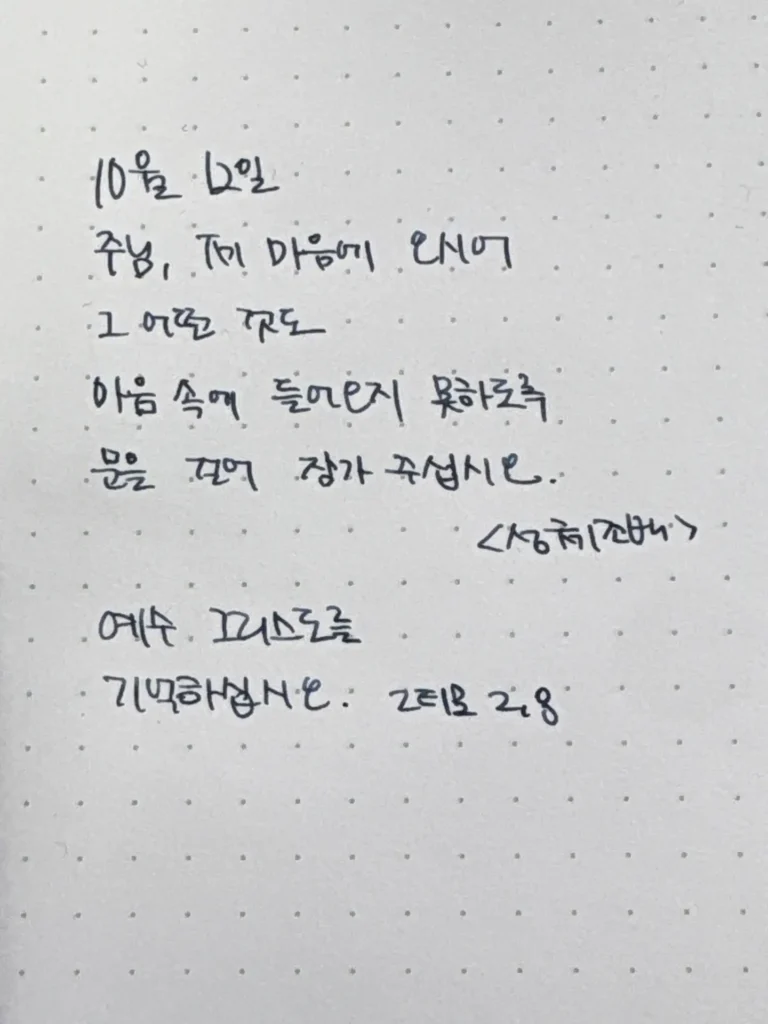 10월 12일
주님, 제 마음에 오시어
그 어떤 것도
마음 속에 들어오지 못하도록
문을 걸어 잠가 주십시오.
<성체조배>
예수 그리스도를
기억하십시오. 2티모 2,8